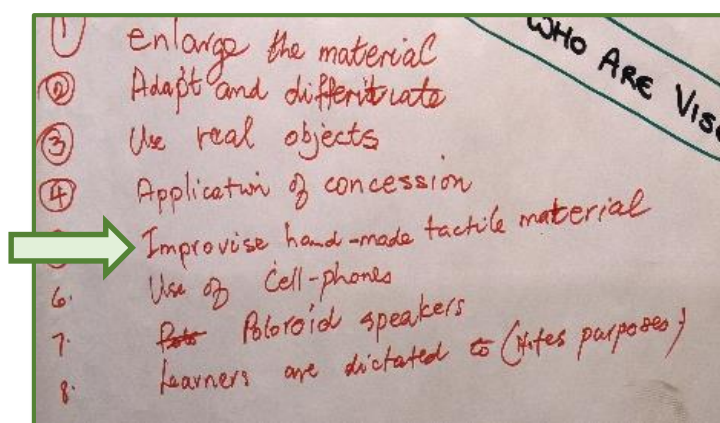 WHO ARE VISU
① enlarge the material
② Adapt and differitiate
③ Use real objects
④ Application of concession
Improvise hand-made tactile material
6. Use of Cell-phones
7. Poloroid speakers
8. Learners are dictated to (Notes purposes)